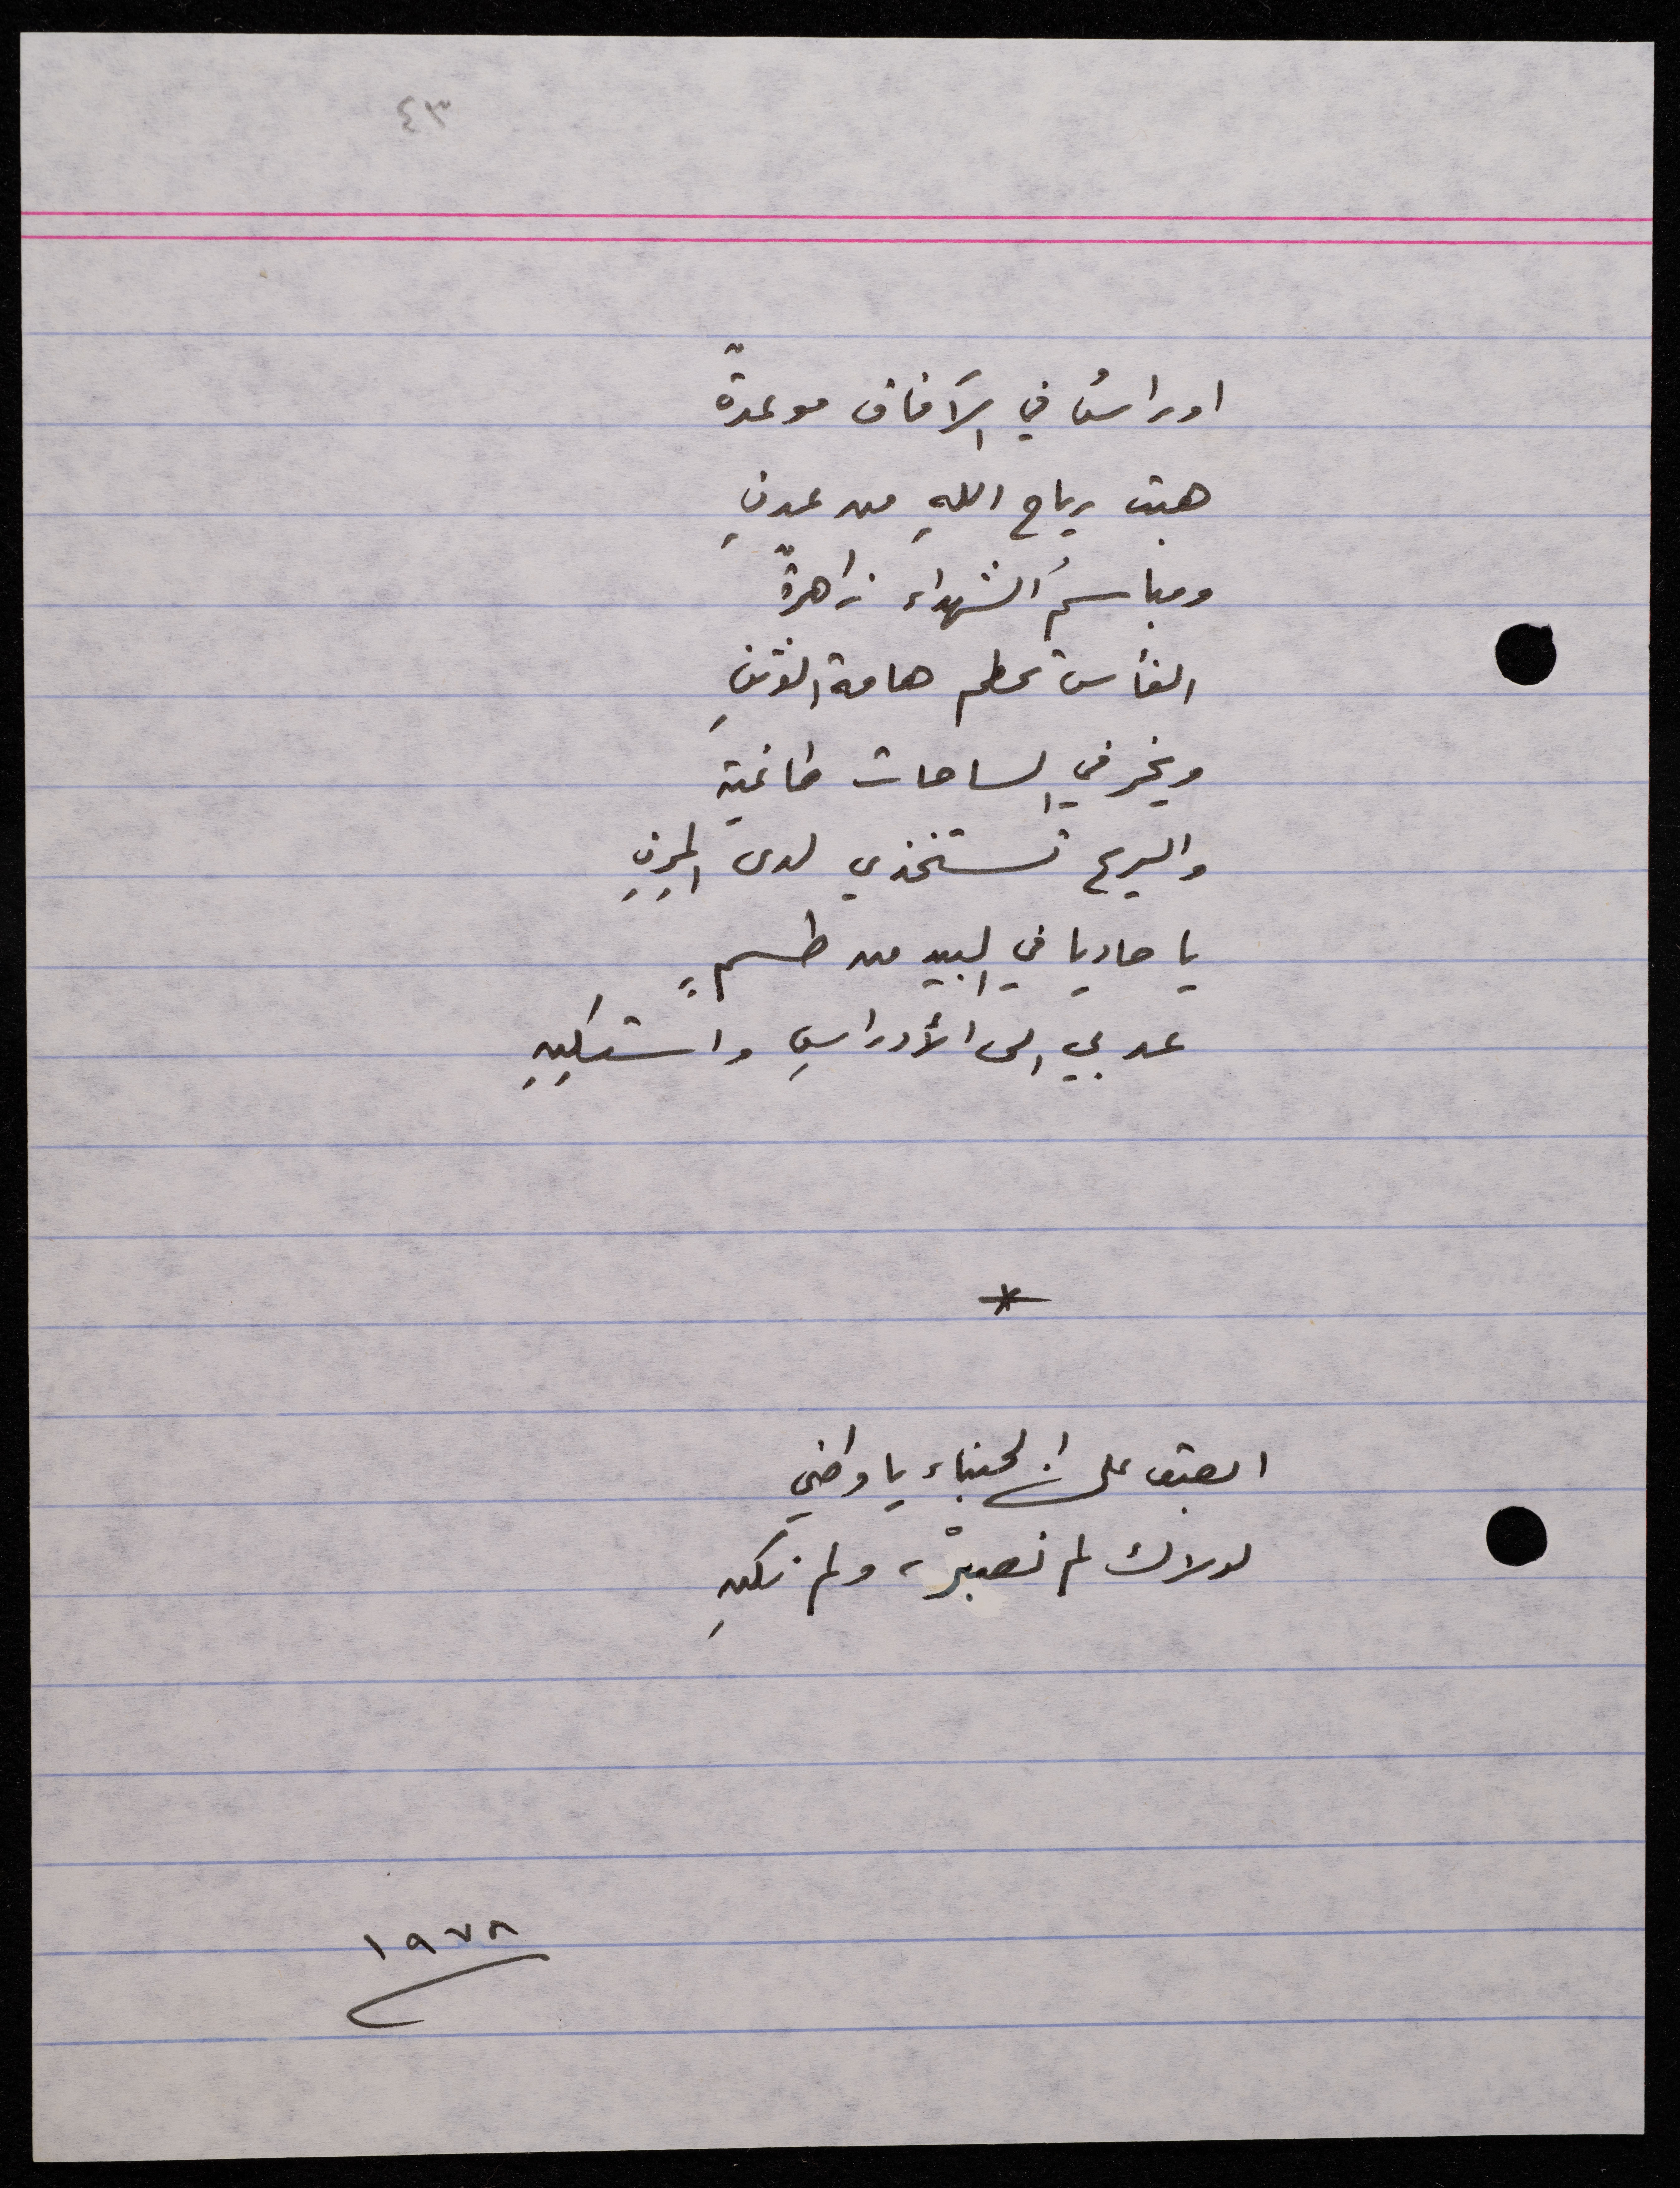 ٤٣
اوراسُ في الآفاق موعدةٌ
هبت رياح اللهِ من عدنِ
ومباسمُ الشهداء زاهرةٌ
الفأس تحطم هامة الوثنِ
ويخر في الساحات طاغية
والريح تستخذي لدى المِزنِ
يا حاديا في البيد من طسمٍ
عد بي الى الأوراسِ واستكِنِ
*
ابصق على الجبناء يا وطني
لولاك لم نصبرْ، ولم نكنِ
١٩٧٨